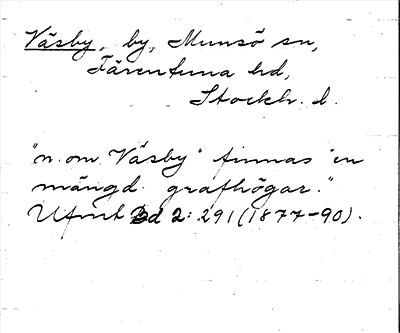 Väsby, by, Munsö sn,
Färentuna hd,
Stockh. l.
"n. om Väsby" finnas "en
mängd grafhögar."
Ufmt Bd 2: 291 (1877-90).